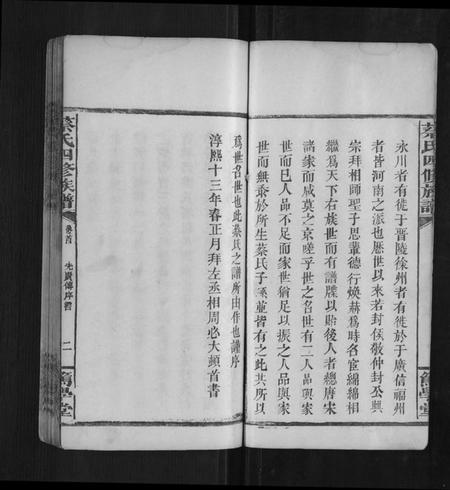 蔡氏四修族譜
永川者有徙于晉陵徐州者有徙於于廣信福州
者皆河南之派也歷世以來若封侯敬仲封公興
宗拜相師聖子思輩德行煥赫爲時名宦綿綿相
繼爲天下右族世而有譜牒以貽後人者總唐宋
諸家而咸莫之京嗟乎世之名世有二人品與家
世而已人品不足而家世猶足以振之人品與家
世而無忝於所生蔡氏子孫並皆有之此其所以
爲世名世也此蔡氏之譜所由作也謹序
淳熙十三年春正月拜左丞相周必大頓首書
蔡氏四修族譜
卷首
先同傳序舊
二